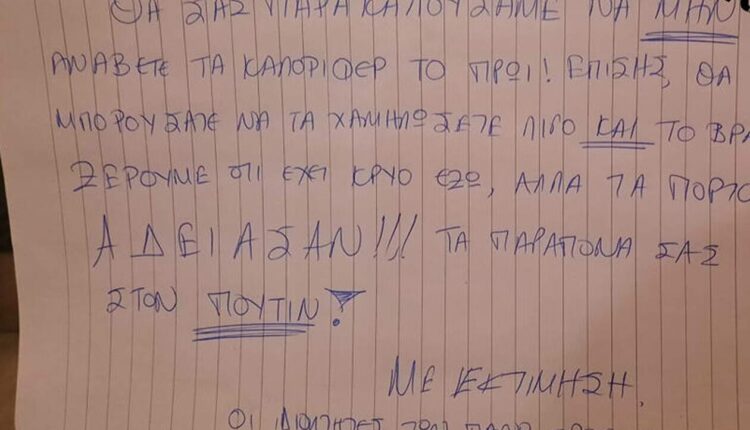 ΘΑ ΣΑΣ ΠΑΡΑΚΑΛΟΥΣΑΜΕ ΝΑ ΜΗΝ
ΑΝΑΒΕΤΕ ΤΑ ΚΑΛΟΡΙΦΕΡ ΤΟ ΠΡΩΙ! ΕΠΙΣΗΣ, ΘΑ
ΜΠΟΡΟΥΣΑΤΕ ΝΑ ΤΑ ΧΑΜΗΛΩΣΕΤΕ ΛΙΓΟ ΚΑΙ ΤΟ ΒΡΑ
ΞΕΡΟΥΜΕ ΟΤΙ ΕΧΕΙ ΚΡΥΟ ΕΞΩ, ΑΛΛΑ ΤΑ ΠΟΡΤΟ
ΑΔΕΙΑΣΑΝ!!! ΤΑ ΠΑΡΑΠΟΝΑ ΣΑΣ
ΣΤΟΝ ΠΟΥΤΙΝ!
ΜΕ ΕΚΤΙΜΗΣΗ,
ΟΙ